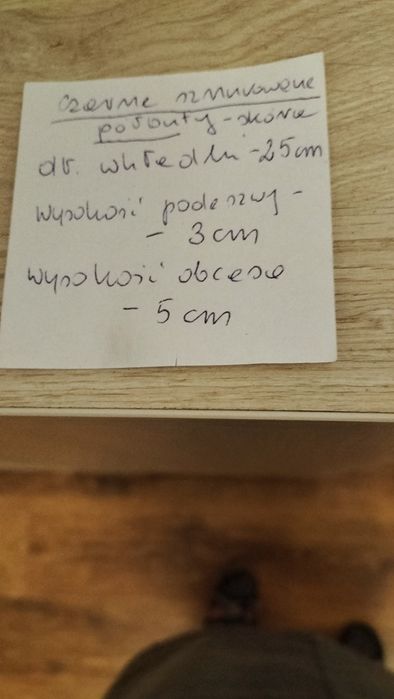 czarne sznurowane
półbuty - skóra
dł. wkładki - 25cm
wysokość podeszwy -
- 3cm
wysokość obcasa
- 5cm